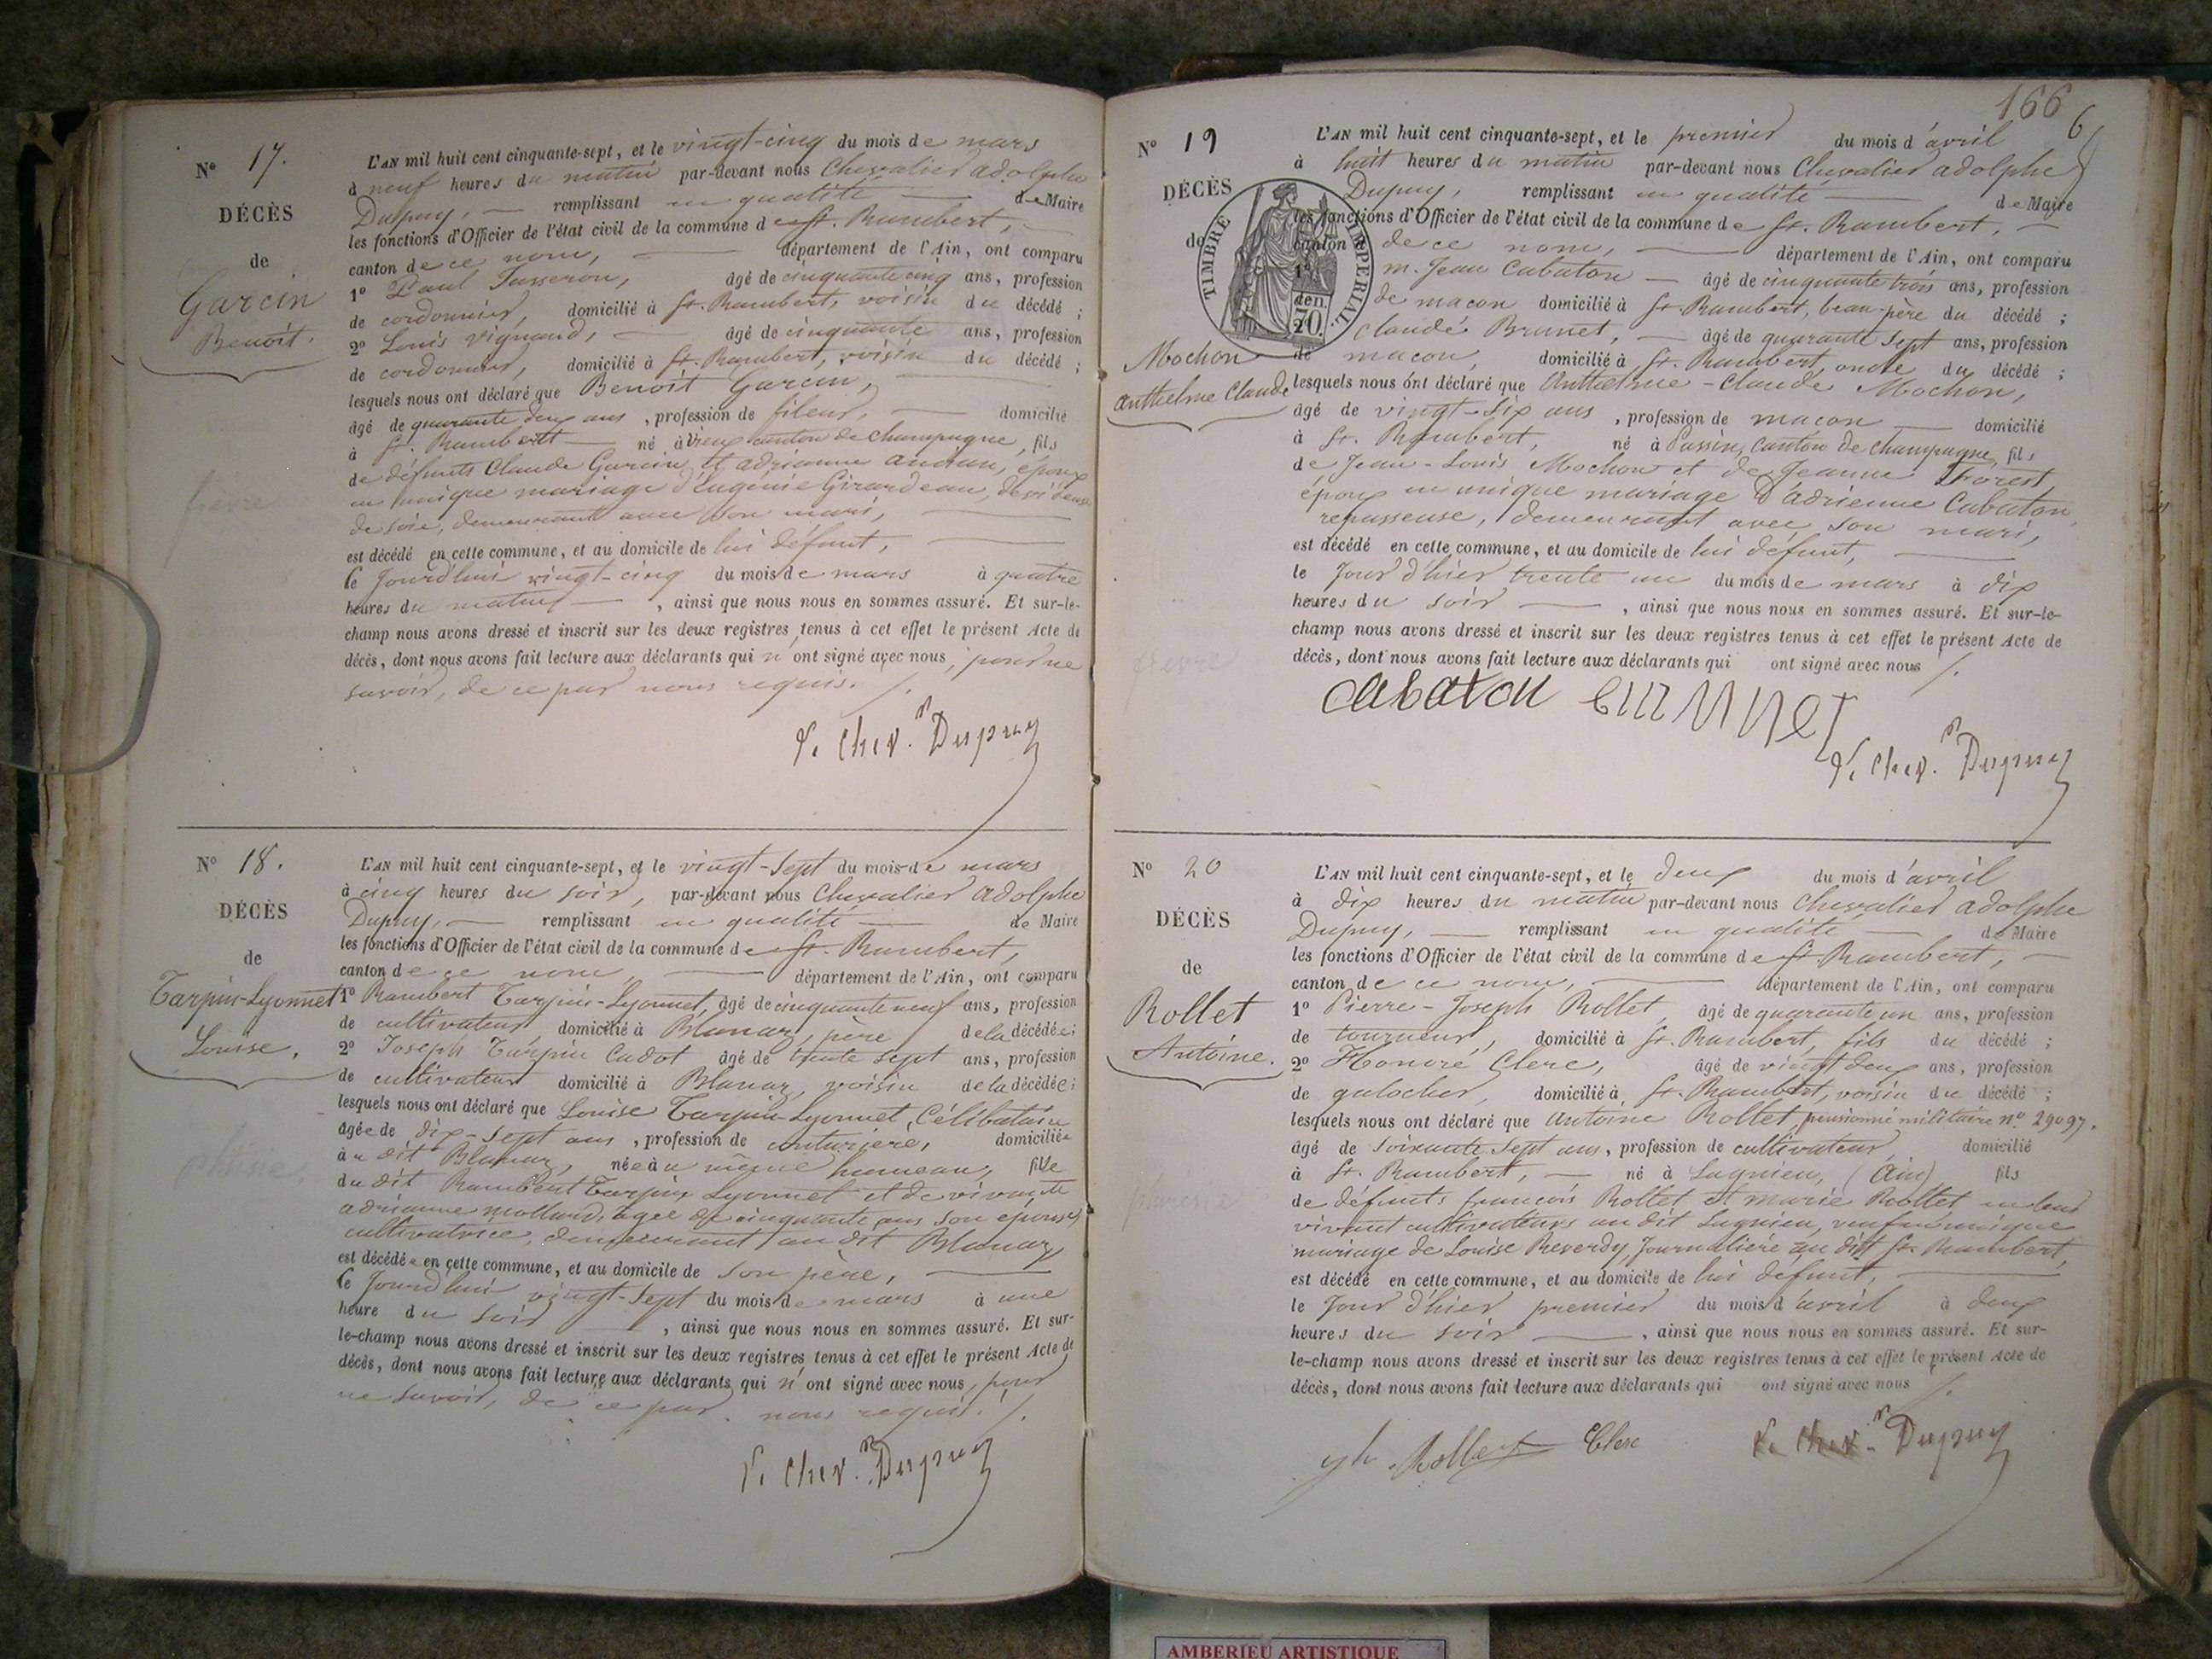 N° 17.
DÉCÈS
de
Garcin
Benoit.
fievre
L'AN mil huit cent cinquante-sept, et le vingt-cinq du mois de mars
à neuf heures du matin par-devant nous Chevalier adolphe
Dupuy, remplissant en qualité de Maire
les fonctions d'Officier de l'état civil de la commune de St. Rambert,
canton de ce nom, département de l'Ain, ont comparu
1° Paul Tasseron, âgé de cinquante cinq ans, profession
de cordonnier, domicilié à St. Rambert, voisin du décédé ;
2° Louis Vignand, âgé de cinquante ans, profession
de cordonnier, domicilié à St. Rambert, voisin du décédé ;
lesquels nous ont déclaré que Benoit Garcin,
âgé de quarante deux ans, profession de fileur, domicilié
à St. Rambert né à Vieux canton de champagne, fils
de défunts Claude Garcin et adrianne, époux
en unique mariage d'Eugénie Girardeau, dévideuse
de soie, demeurant avec son mari,
est décédé en cette commune, et au domicile de lui défunt,
le jourd'hui vingt-cinq du mois de mars à quatre
heures du matin, ainsi que nous nous en sommes assuré. Et sur-le-
champ nous avons dressé et inscrit sur les deux registres tenus à cet effet le présent Acte de
décès, dont nous avons fait lecture aux déclarants qui n'ont signé avec nous, pour ne
savoir, de ce par nous requis. /.
Le Chev.er Dupuy
N° 18.
DÉCÈS
de
Tarpin-Lyonnet
Louise.
phtisie
L'AN mil huit cent cinquante-sept, et le vingt-sept du mois de mars
à cinq heures du soir, par-devant nous Chevalier adolphe
Dupuy, remplissant en qualité de Maire
les fonctions d'Officier de l'état civil de la commune de St. Rambert,
canton de ce nom, département de l'Ain, ont comparu
1° Rambert Tarpin-Lyonnet, âgé de cinquante neuf ans, profession
de cultivateur domicilié à Blanaz, père de la décédée ;
2° Joseph Tarpin Cadot âgé de trente sept ans, profession
de cultivateur domicilié à Blanaz, voisin de la décédée ;
lesquels nous ont déclaré que Louise Tarpin-Lyonnet, Célibataire
âgée de dix-sept ans, profession de couturiere, domiciliée
au dit Blanaz, née au même hameau, fille
du dit Rambert Tarpin Lyonnet et de vivante
adrianne mollard, agée de cinquante ans son épouse,
cultivatrice, demeurant au dit Blanaz,
est décédée en cette commune, et au domicile de son père,
le jourd'hui vingt-sept du mois de mars à une
heure du soir, ainsi que nous nous en sommes assuré. Et sur-
le-champ nous avons dressé et inscrit sur les deux registres tenus à cet effet le présent Acte de
décès, dont nous avons fait lecture aux déclarants qui n'ont signé avec nous, pour
ne savoir, de ce par nous requis. /.
Le Chev.er Dupuy
166
6
N° 19
DÉCÈS
de
TIMBRE IMPERIAL
den.
20
Mochon
anthelme Claude
fievre
L'AN mil huit cent cinquante-sept, et le premier du mois d'avril
à huit heures du matin par-devant nous Chevalier adolphe
Dupuy, remplissant en qualité de Maire
les fonctions d'Officier de l'état civil de la commune de St. Rambert,
canton de ce nom, département de l'Ain, ont comparu
1° m. Jean Cabaton âgé de cinquante trois ans, profession
de macon domicilié à St. Rambert, beau-père du décédé ;
claude Brunet, âgé de quarante sept ans, profession
de macon, domicilié à St. Rambert, oncle du décédé ;
lesquels nous ont déclaré que Anthelme-Claude Mochon,
âgé de vingt-six ans, profession de macon domicilié
à St. Rambert, né à Passin, canton de Champagne, fils
de Jean-Louis Mochon et de Jeanne Forest,
époux en unique mariage d'adrienne Cabaton,
repasseuse, demeurant avec son mari,
est décédé en cette commune, et au domicile de lui défunt,
le jour d'hier trente un du mois de mars à dix
heures du soir, ainsi que nous nous en sommes assuré. Et sur-le-
champ nous avons dressé et inscrit sur les deux registres tenus à cet effet le présent Acte de
décès, dont nous avons fait lecture aux déclarants qui ont signé avec nous /.
Cabaton Brunet
Le Chev.er Dupuy
N° 20
DÉCÈS
de
Rollet
Antoine.
L'AN mil huit cent cinquante-sept, et le deux du mois d'avril
à dix heures du matin par-devant nous Chevalier adolphe
Dupuy, remplissant en qualité de Maire
les fonctions d'Officier de l'état civil de la commune de St. Rambert,
canton de ce nom, département de l'Ain, ont comparu
1° Pierre-Joseph Rollet, âgé de quarante un ans, profession
de tourneur, domicilié à St. Rambert, fils du décédé ;
2° Honoré Clerc, âgé de vingt deux ans, profession
de galocher, domicilié à St. Rambert, voisin du décédé ;
lesquels nous ont déclaré que Antoine Rollet, pensionné militaire n° 29097.
âgé de soixante sept ans, profession de cultivateur domicilié
à St. Rambert, né à Lagnieu, (Ain) fils
de défunts françois Rollet et marie Rollet en leur
vivant cultivateurs au dit Lagnieu, veuf en unique
mariage de Louise Reverdy, Journalière au dit St. Rambert,
est décédé en cette commune, et au domicile de lui défunt,
le jour d'hier premier du mois d'avril à deux
heures du soir, ainsi que nous nous en sommes assuré. Et sur-
le-champ nous avons dressé et inscrit sur les deux registres tenus à cet effet le présent Acte de
décès, dont nous avons fait lecture aux déclarants qui ont signé avec nous /.
Rollet Clerc Le Chev.er Dupuy
AMBERIEU ARTISTIQUE